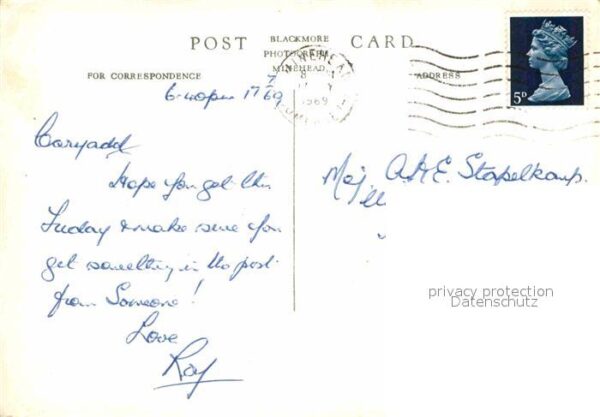 POST CARD
BLACKMORE
PHOTOGRAPH
MINEHEAD
FOR CORRESPONDENCE
ADDRESS
MINEHEAD
1969
SOMERSET
5D
Hope you get this
Friday & make sure you
get something in the post
from Someone!
Love
Ray
Maj. A.H.E. Stapelkamp.
privacy protection
Datenschutz